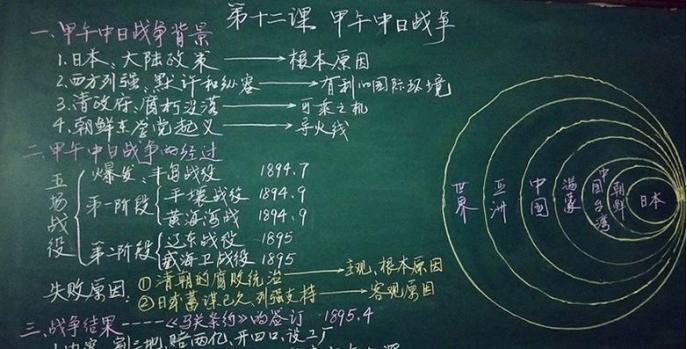 第十二课 甲午中日战争
一、甲午中日战争背景
1.日本、大陆政策 → 根本原因
2.西方列强、默许和纵容 → 有利的国际环境
3.清政府、腐朽没落 → 可乘之机
4.朝鲜东学党起义 → 导火线
二、甲午中日战争的经过
五场战役
爆发:丰岛战役 1894.7
第一阶段 平壤战役 1894.9
黄海海战 1894.9
第二阶段 辽东战役 1895
威海卫战役 1895
失败原因: ①清朝的腐败统治 → 主观、根本原因
②日本蓄谋已久、列强支持 → 客观原因
三、战争结果----《马关条约》的签订 1895.4
1.内容:割三地,赔两亿、开四口、设工厂
世界
亚洲
中国
满蒙
中国台湾
朝鲜
日本